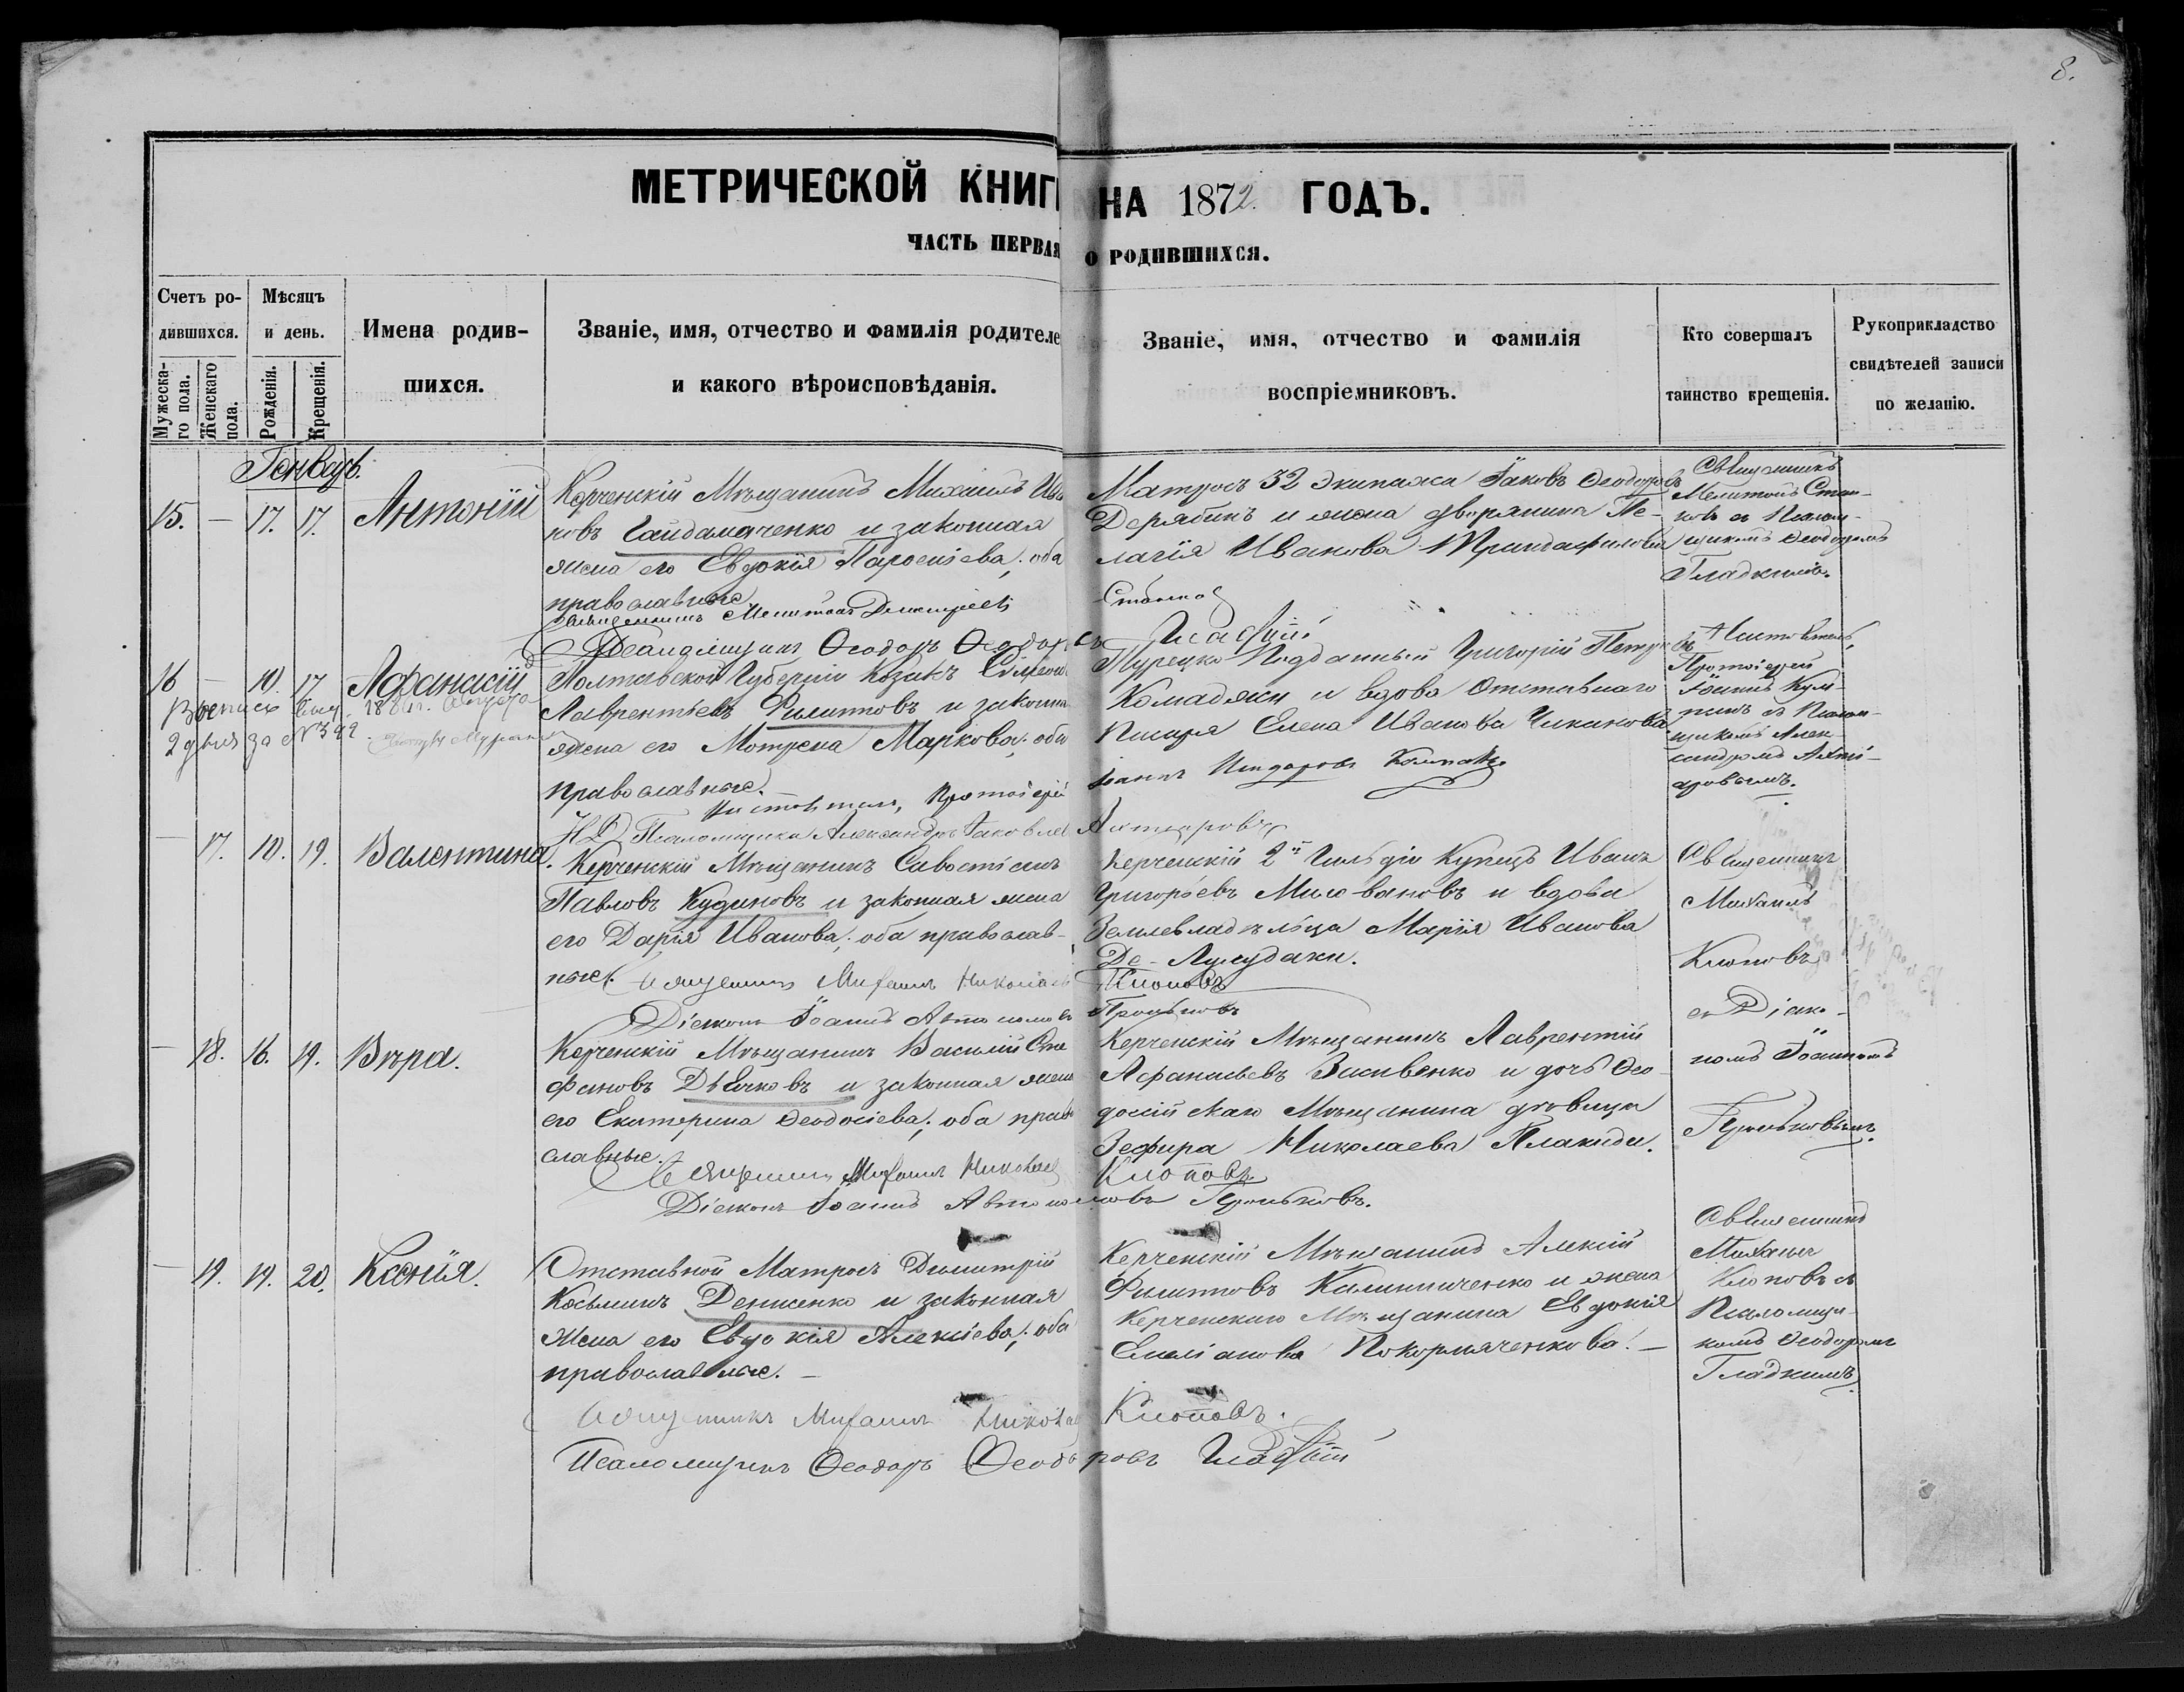 8.
МЕТРИЧЕСКОЙ КНИГИ НА 1872. ГОДЪ.
ЧАСТЬ ПЕРВАЯ О РОДИВШИХСЯ.
Счетъ ро-
дившихся.
Мужеска-
го пола.
Женскаго
пола.
Мѣсяцъ
и день.
Рожденія.
Крещенія.
Имена родив-
шихся.
Званіе, имя, отчество и фамилія родителе
и какого вѣроисповѣданія.
Званіе, имя, отчество и фамилія
воспріемниковъ.
Кто совершалъ
таинство крещенія.
Рукоприкладство
свидѣтелей записи
по желанію.
Генварь.
15. — 17. 17. Антоній
Керченскій Мѣщанинъ Михаилъ Ива
новъ Гайдамаченко и законная
жена его Евдокія Парѳеніева; оба
православные
Священникъ Мелитонъ Димитріевъ
Псаломщикъ Ѳеодоръ Ѳеодоровъ
Матросъ 32 экипажа Іаковъ Ѳеодоровъ
Дерябинъ и жена дворянина Пе-
лагія Иванова Триндафилова
Станковъ
Гладкій
Священникъ
Мелитонъ Стан-
ковъ съ Псалом-
щикомъ Ѳеодоромъ
Гладкимъ.
16 — 10. 17 Афанасій
2 дня за №
Полтавской Губерніи Козакъ
Лаврентьевъ Филиповъ и законна
жена его Мотрена Маркова; оба
православные.
Настоятель, Протоіерей
И Д Псаломщика Александръ Іаковлев
Турецко Подданный Григорій Петровъ
Комадяси и вдова Отставнаго
Писаря Елена Иванова Чиканова
Іоаннъ
Настоятель,
Протоіерей
Іоаннъ Кум-
панъ съ Псалом-
щикомъ Алек-
сандромъ
— 17. 10. 19. Валентина.
Керченскій Мѣщанинъ Савостіанъ
Павловъ Кудиновъ и законная жена
его Дарія Иванова; оба православ-
ные.
Священникъ Михаилъ Николаев
Діаконъ Іоаннъ Автономовъ
Керченскій 2й Гильдіи Купецъ Иванъ
Григорьевъ Миловановъ и вдова
Землевладѣльца Марія Иванова
Клоповъ
Священникъ
Михаилъ
Клоповъ
съ Діако-
номъ Іоанномъ
— 18. 16. 19. Вѣра.
Керченскій Мѣщанинъ Василій Сте
фановъ Дѣвочковъ и законная жена
его Екатерина Ѳеодосіева; оба право
славные.
Священникъ Михаилъ Николаев
Діаконъ Іоаннъ Автономовъ
Керченскій Мѣщанинъ Лаврентій
Афанасьевъ и дочь Ѳео-
досійскаго Мѣщанина дѣвица
Зефира Николаева Плакида.
Клоповъ
— 19. 19. 20. Ксенія.
Отставной Матросъ Димитрій
Косьминъ Денисенко и законная
жена его Евдокія Алексіева; оба
православные. —
Священникъ Михаилъ Николаев
Псаломщикъ Ѳеодоръ Ѳеодоровъ
Керченскій Мѣщанинъ Алексій
Филиповъ Калиниченко и жена
Керченскаго Мѣщанина Евдокія
Емеліанова Покормяченкова. —
Клоповъ.
Гладкій
Священникъ
Михаилъ
Клоповъ съ
Псаломщи-
комъ Ѳеодоромъ
Гладкимъ